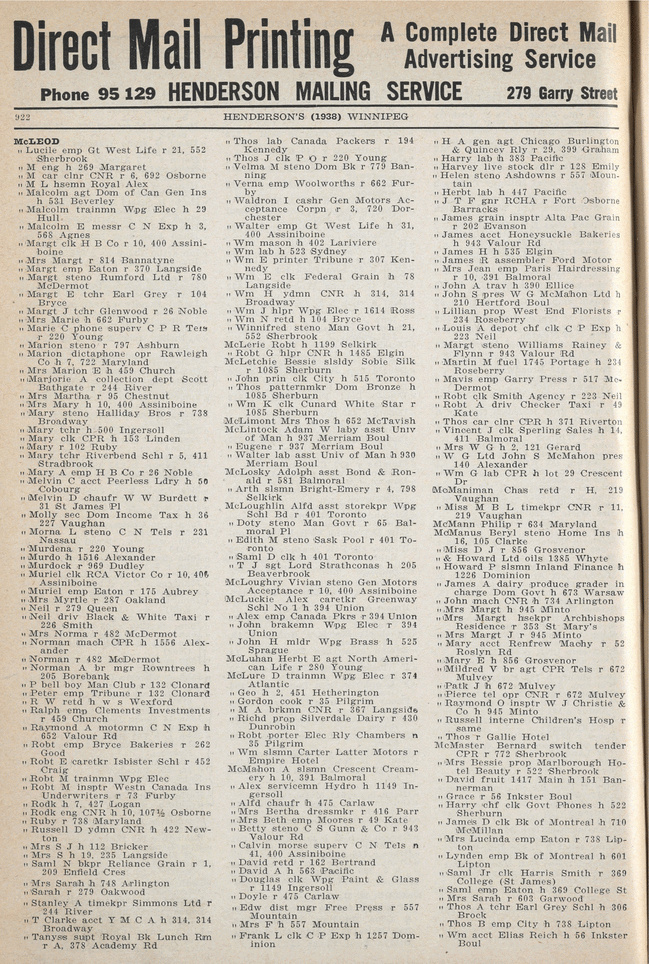 Direct Mail Printing
A Complete Direct Mail
Advertising Service
Phone 95 129 HENDERSON MAILING SERVICE 279 Garry Street
922 HENDERSON'S (1938) WINNIPEG
McLEOD
„ Lucile emp Gt West Life r 21, 552
Sherbrook
„ M eng h 269 Margaret
„ M car clnr CNR r 6, 692 Osborne
„ M L hsemn Royal Alex
„ Malcolm agt Dom of Can Gen Ins
h 531 Beverley
„ Malcolm trainmn Wpg Elec h 29
Hull
„ Malcolm E messr C N Exp h 3,
568 Agnes
„ Margt clk H B Co r 10, 400 Assini-
boine
„ Mrs Margt r 814 Bannatyne
„ Margt emp Eaton r 370 Langside
„ Margt steno Rumford Ltd r 780
McDermot
„ Margt E tchr Earl Grey r 104
Bryce
„ Margt J tchr Glenwood r 26 Noble
„ Mrs Marie h 662 Furby
„ Marie C phone superv C P R Tels
r 220 Young
„ Marion steno r 797 Ashburn
„ Marion dictaphone opr Rawleigh
Co h 7, 722 Maryland
„ Mrs Marion E h 459 Church
„ Marjorie A collection dept Scott
Bathgate r 244 River
„ Mrs Martha r 95 Chestnut
„ Mrs Mary h 10, 400 Assiniboine
„ Mary steno Halliday Bros r 738
Broadway
„ Mary tchr h 500 Ingersoll
„ Mary clk CPR h 153 Linden
„ Mary r 102 Ruby
„ Mary tchr Riverbend Schl r 5, 411
Stradbrook
„ Mary A emp H B Co r 26 Noble
„ Melvin C acct Peerless Ldry h 50
Cobourg
„ Melvin D chaufr W W Burdett r
31 St James Pl
„ Molly sec Dom Income Tax h 36
227 Vaughan
„ Morna L steno C N Tels r 231
Nassau
„ Murdena r 220 Young
„ Murdo h 1516 Alexander
„ Murdock r 969 Dudley
„ Muriel clk RCA Victor Co r 10, 400
Assiniboine
„ Muriel emp Eaton r 175 Aubrey
„ Mrs Myrtle r 287 Oakland
„ Neil r 279 Queen
„ Neil driv Black & White Taxi r
226 Smith
„ Mrs Norma r 482 McDermot
„ Norman mach CPR h 1556 Alex-
ander
„ Norman r 482 McDermot
„ Norman A br mgr Rowntrees h
205 Borebank
„ P bell boy Man Club r 132 Clonard
„ Peter emp Tribune r 132 Clonard
„ R W retd h w s Wexford
„ Ralph emp Clements Investments
r 459 Church
„ Raymond A motormn C N Exp h
652 Valour Rd
„ Robt emp Bryce Bakeries r 262
Good
„ Robt E caretkr Isbister Schl r 452
Craig
„ Robt M trainmn Wpg Elec
„ Robt M insptr Westn Canada Ins
Underwriters r 73 Furby
„ Rodk h 7, 427 Logan
„ Rodk eng CNR h 10, 107½ Osborne
„ Ruby r 738 Maryland
„ Russell D ydmn CNR h 422 New-
ton
„ Mrs S J h 112 Bricker
„ Mrs S h 19, 235 Langside
„ Saml N bkpr Reliance Grain r 1,
209 Enfield Cres
„ Mrs Sarah h 748 Arlington
„ Sarah r 279 Oakwood
„ Stanley A timekpr Simmons Ltd r
244 River
„ T Clarke acct Y M C A h 314, 314
Broadway
„ Tanyss supt Royal Bk Lunch Rm
r A, 378 Academy Rd
„ Thos lab Canada Packers r 194
Kennedy
„ Thos J clk P O r 220 Young
„ Velma M steno Dom Bk r 779 Ban-
ning
„ Verna emp Woolworths r 662 Fur-
by
„ Waldron I cashr Gen Motors Ac-
ceptance Corpn r 3, 720 Dor-
chester
„ Walter emp Gt West Life h 31,
400 Assiniboine
„ Wm mason h 402 Lariviere
„ Wm lab h 523 Sydney
„ Wm E printer Tribune r 307 Ken-
nedy
„ Wm E clk Federal Grain h 78
Langside
„ Wm H ydmn CNR h 314, 314
Broadway
„ Wm J hlpr Wpg Elec r 1614 Ross
„ Wm N retd h 104 Bryce
„ Winnifred steno Man Govt h 21,
552 Sherbrook
McLerie Robt h 1199 Selkirk
„ Robt G hlpr CNR h 1485 Elgin
McLetchie Bessie slsldy Sobie Silk
r 1085 Sherburn
„ John prin clk City h 515 Toronto
„ Thos patternmkr Dom Bronze h
1085 Sherburn
„ Wm K clk Cunard White Star r
1085 Sherburn
McLimont Mrs Thos h 652 McTavish
McLintock Adam W laby asst Univ
of Man h 937 Merriam Boul
„ Eugene r 937 Merriam Boul
„ Walter lab asst Univ of Man h 930
Merriam Boul
McLosky Adolph asst Bond & Ron-
ald r 581 Balmoral
„ Arth slsmn Bright-Emery r 4, 798
Selkirk
McLoughlin Alfd asst storekpr Wpg
Schl Bd r 401 Toronto
„ Doty steno Man Govt r 65 Bal-
moral Pl
„ Edith M steno Sask Pool r 401 To-
ronto
„ Saml D clk h 401 Toronto
„ T J sgt Lord Strathconas h 205
Beaverbrook
McLoughry Vivian steno Gen Motors
Acceptance r 10, 400 Assiniboine
McLuckie Alex caretkr Greenway
Schl No 1 h 394 Union
„ Alex emp Canada Pkrs r 394 Union
„ John brakemn Wpg Elec r 394
Union
„ John H mldr Wpg Brass h 525
Sprague
McLuhan Herbt E agt North Ameri-
can Life r 280 Young
McLure D trainmn Wpg Elec r 374
Atlantic
„ Geo h 2, 451 Hetherington
„ Gordon cook r 35 Pilgrim
„ M A brkmn CNR r 367 Langside
„ Richd prop Silverdale Dairy r 430
Dunrobin
„ Robt porter Elec Rly Chambers n
35 Pilgrim
„ Wm slsmn Carter Latter Motors r
Empire Hotel
McMahon A slsmn Crescent Cream-
ery h 10, 391 Balmoral
„ Alex servicemn Hydro h 1149 In-
gersoll
„ Alfd chaufr h 475 Carlaw
„ Mrs Bertha dressmkr r 416 Parr
„ Mrs Beth emp Moores r 49 Kate
„ Betty steno C S Gunn & Co r 943
Valour Rd
„ Calvin morse superv C N Tels n
41, 400 Assiniboine
„ David retd r 162 Bertrand
„ David A h 563 Pacific
„ Douglas clk Wpg Paint & Glass
r 1149 Ingersoll
„ Doyle r 475 Carlaw
„ Edw dist mgr Free Press r 557
Mountain
„ Mrs F h 557 Mountain
„ Frank L clk C P Exp h 1257 Dom-
inion
„ H A gen agt Chicago Burlington
& Quincey Rly r 29, 399 Graham
„ Harry lab h 383 Pacific
„ Harvey live stock dlr r 128 Emily
„ Helen steno Ashdowns r 557 Moun-
tain
„ Herbt lab h 447 Pacific
„ J T F gnr RCHA r Fort Osborne
Barracks
„ James grain insptr Alta Pac Grain
r 202 Evanson
„ James acct Honeysuckle Bakeries
h 943 Valour Rd
„ James H h 535 Elgin
„ James R assembler Ford Motor
„ Mrs Jean emp Paris Hairdressing
r 10, 391 Balmoral
„ John A trav h 390 Ellice
„ John S pres W G McMahon Ltd h
210 Hertford Boul
„ Lillian prop West End Florists r
234 Roseberry
„ Louis A depot chf clk C P Exp h
223 Neil
„ Margt steno Williams Rainey &
Flynn r 943 Valour Rd
„ Martin M fuel 1745 Portage h 234
Roseberry
„ Mavis emp Garry Press r 517 Mc-
Dermot
„ Robt clk Smith Agency r 223 Neil
„ Robt A driv Checker Taxi r 49
Kate
„ Thos car clnr CPR h 371 Riverton
„ Vincent J clk Sperling Sales h 14,
411 Balmoral
„ Mrs W G h 2, 121 Gerard
„ W G Ltd John S McMahon pres
140 Alexander
„ Wm G lab CPR h lot 29 Crescent
Dr
McManiman Chas retd r H, 219
Vaughan
„ Miss M B L timekpr CNR r 11,
219 Vaughan
McMann Philip r 634 Maryland
McManus Beryl steno Home Ins h
16, 105 Clarke
„ Miss D J r 856 Grosvenor
„ & Howard Ltd oils 1385 Whyte
„ Howard P slsmn Inland Finance h
1226 Dominion
„ James A dairy produce grader in
charge Dom Govt h 673 Warsaw
„ John mach CNR h 734 Arlington
„ Mrs Margt h 945 Minto
„ Mrs Margt hsekpr Archbishops
Residence r 353 St Mary's
„ Mrs Margt J r 945 Minto
„ Mary acct Renfrew Machy r 52
Roslyn Rd
„ Mary E h 856 Grosvenor
„ Mildred V br agt CPR Tels r 672
Mulvey
„ Patk J h 672 Mulvey
„ Pierce tel opr CNR r 672 Mulvey
„ Raymond O insptr W J Christie &
Co h 945 Minto
„ Russell interne Children's Hosp r
same
„ Thos r Gallie Hotel
McMaster Bernard switch tender
CPR r 772 Sherbrook
„ Mrs Bessie prop Marlborough Ho-
tel Beauty r 522 Sherbrook
„ David fruit 1417 Main h 151 Ban-
nerman
„ Grace r 56 Inkster Boul
„ Harry chf clk Govt Phones h 522
Sherburn
„ James D clk Bk of Montreal h 710
McMillan
„ Mrs Lucinda emp Eaton r 738 Lip-
ton
„ Lynden emp Bk of Montreal h 601
Lipton
„ Saml Jr clk Harris Smith r 369
College (St James)
„ Saml emp Eaton h 369 College St
„ Mrs Sarah r 603 Garwood
„ Thos A tchr Earl Grey Schl h 306
Brock
„ Thos B emp City h 738 Lipton
„ Wm acct Elias Reich h 56 Inkster
Boul